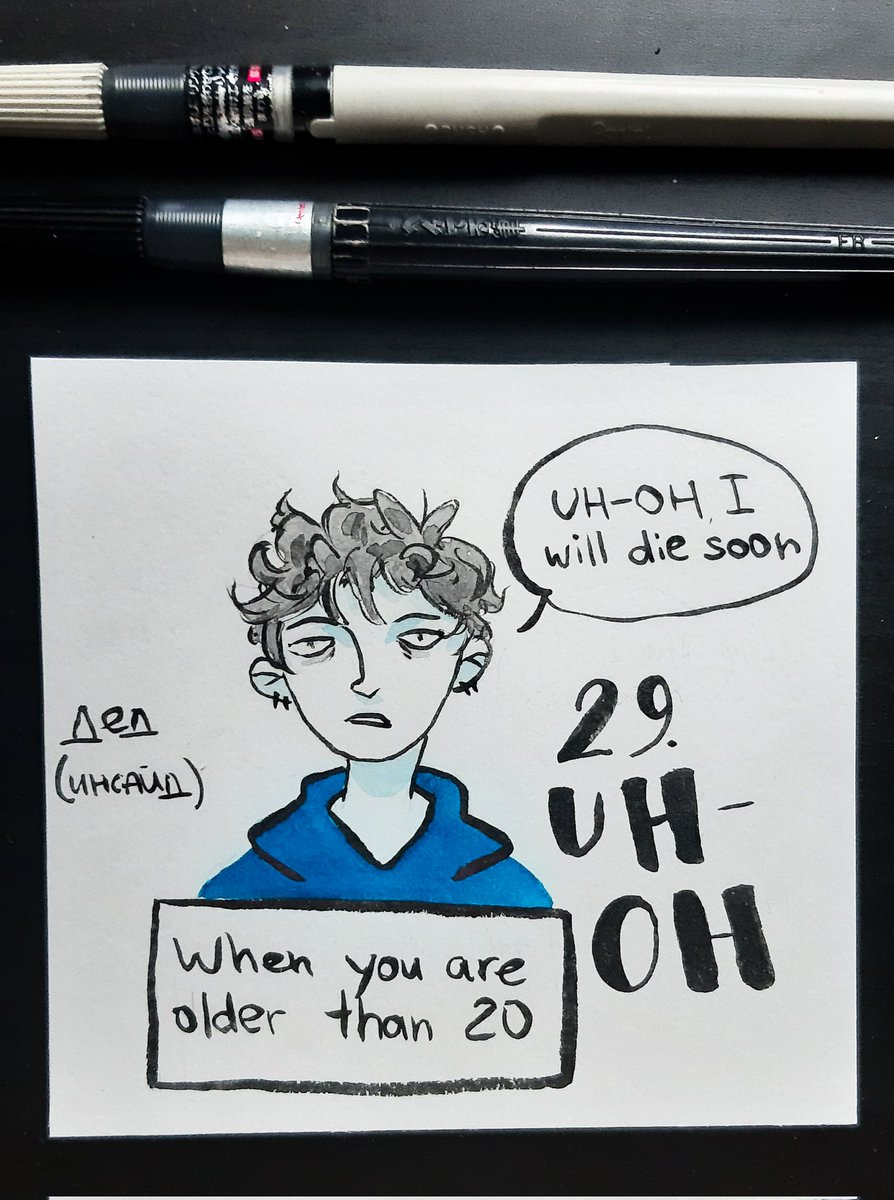 FR
UH-OH, I
will die soon
29.
UH-
OH
Дед
(инсайд)
When you are
older than 20